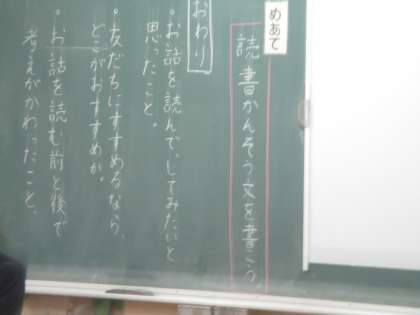 めあて
読書かんそう文を書こう。
おわり
。お話を読んで、してみたいと
思ったこと。
。友だちにすすめるなら、
どこがおすすめか。
。お話を読む前と後で
考えがかわったこと。